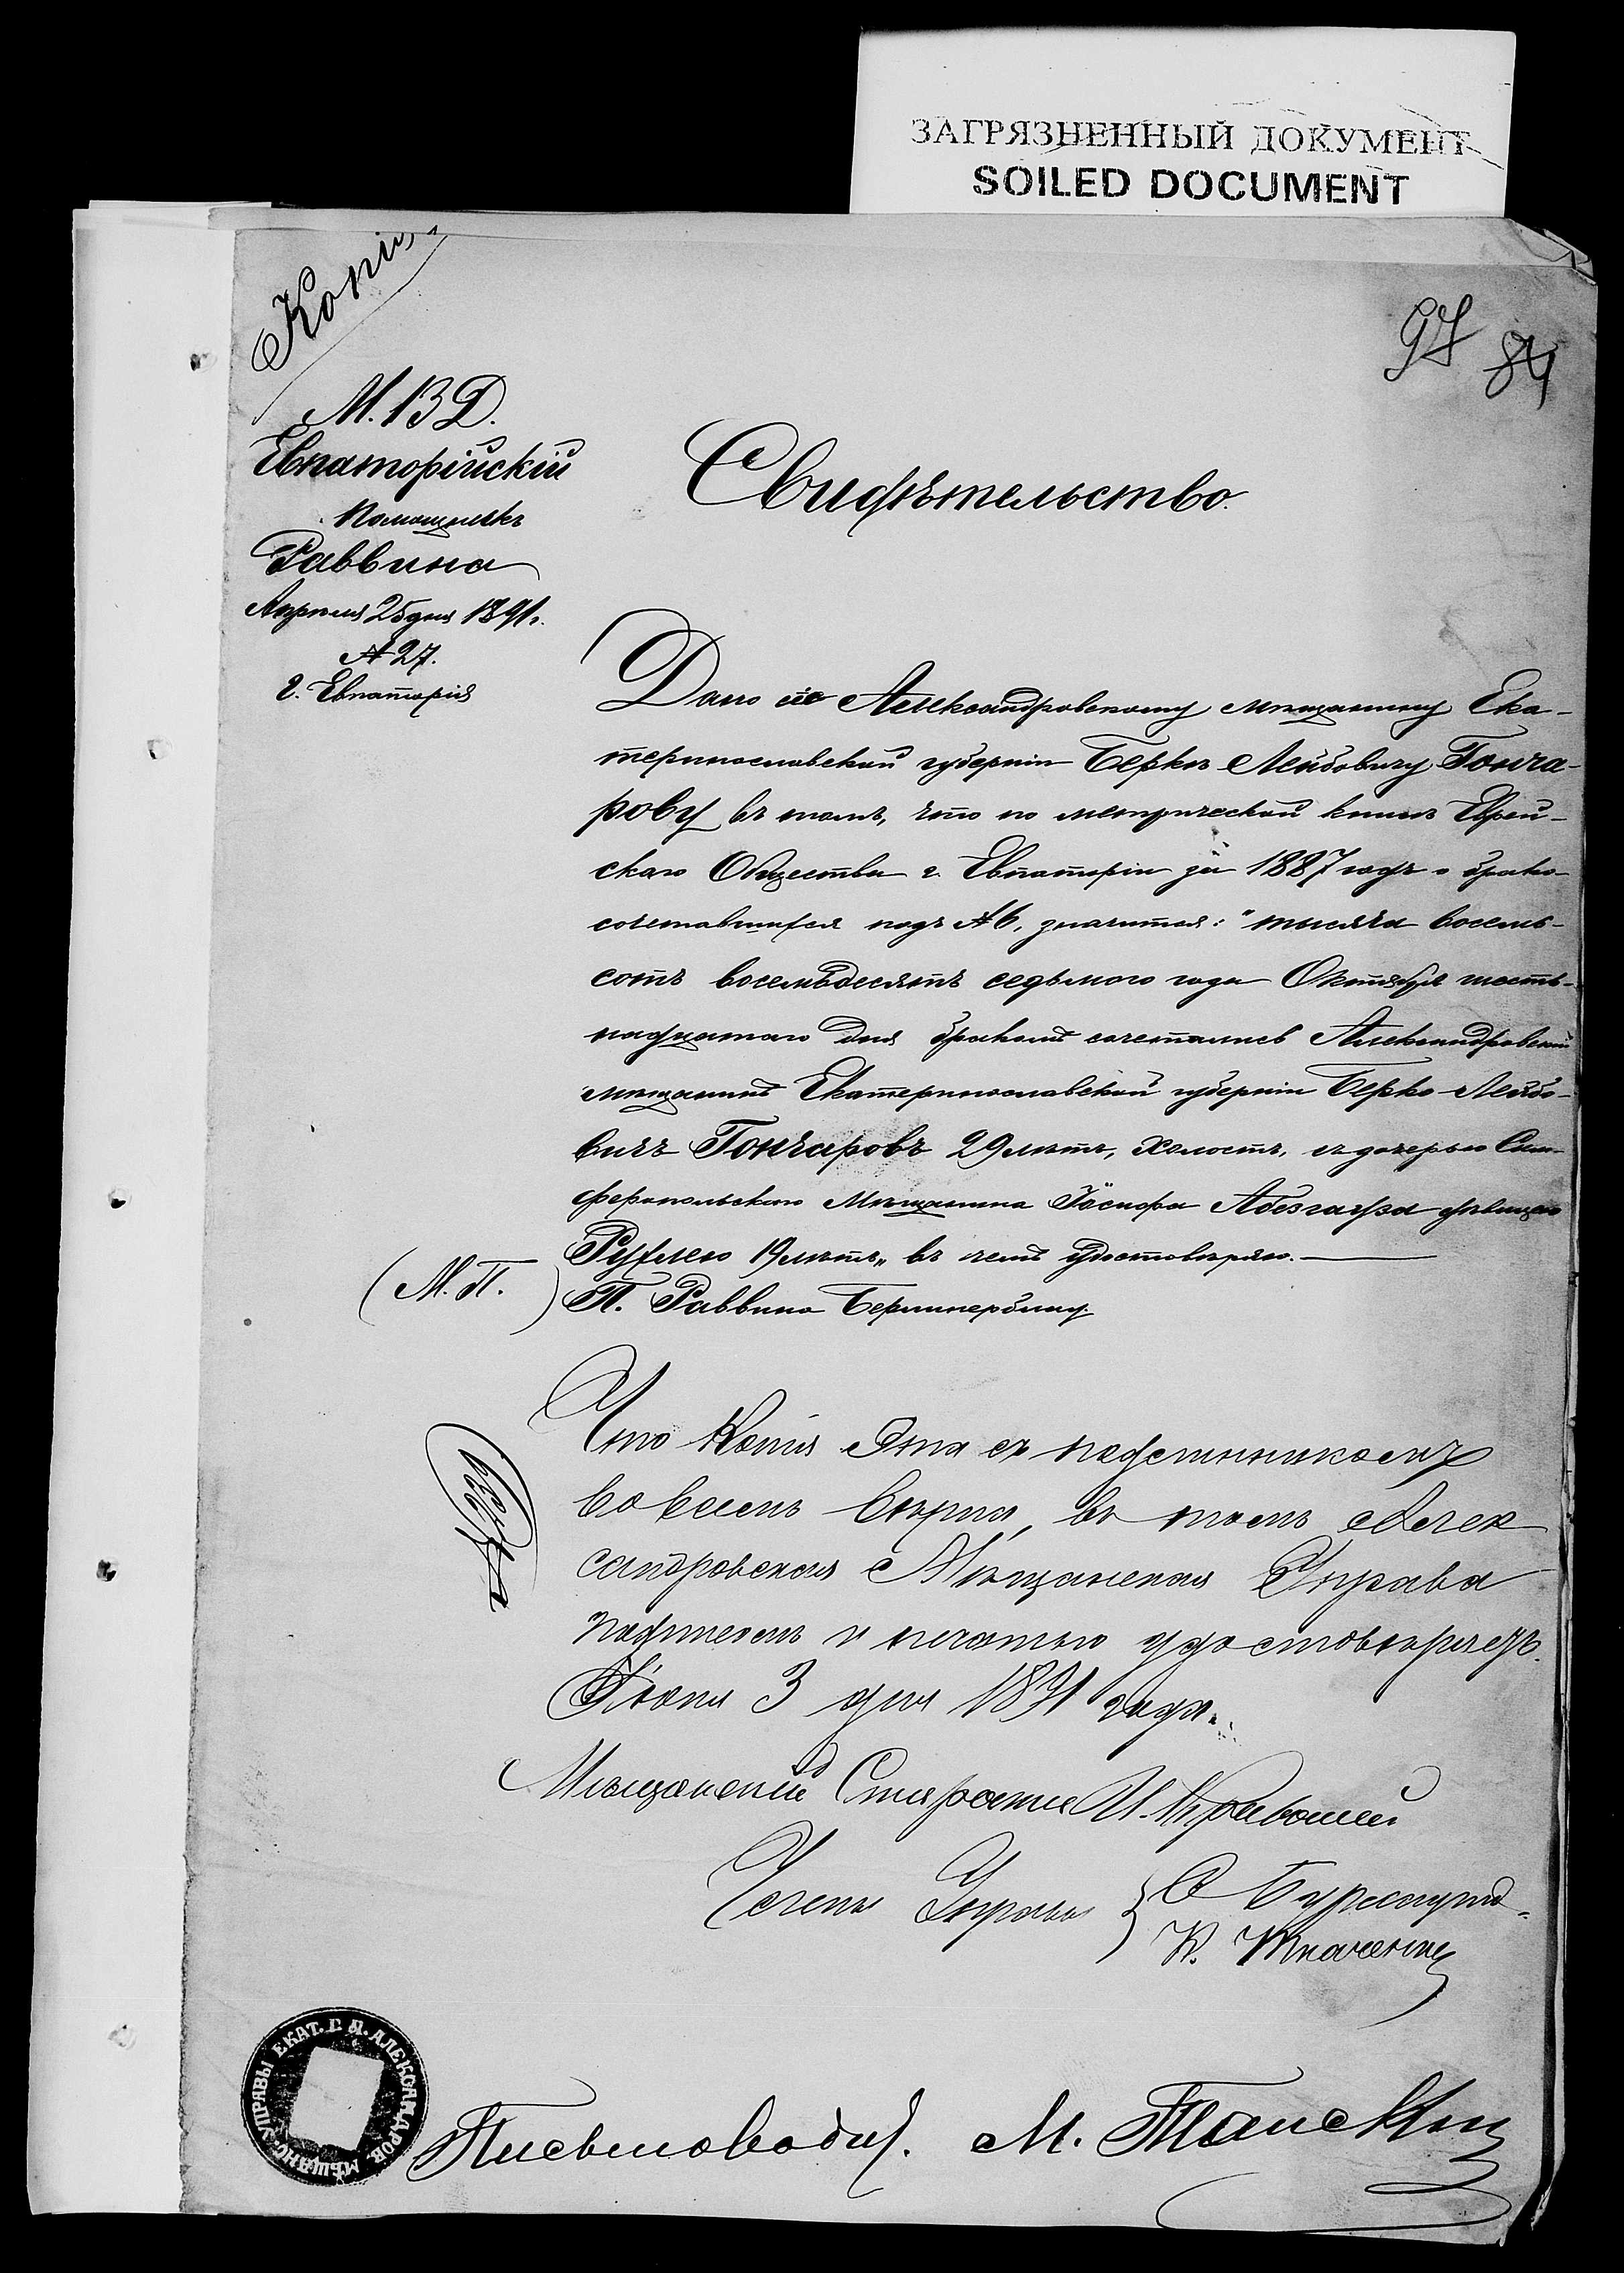 ЗАГРЯЗНЕННЫЙ ДОКУМЕНТ
SOILED DOCUMENT
Копія
97 84
М. В. Д.
Евпаторійскій
Помощникъ
Раввина
Апрѣля 25 дня 1891 г.
№ 27.
г. Евпаторія
Свидѣтельство.
Дано сіе Александровскому мѣщанину Ека-
теринославской губерніи Беркѣ Лейбовичу Гонча-
рову въ томъ, что по метрической книгѣ Еврей-
скаго Общества г. Евпаторіи за 1887 годъ о брако-
сочетавшихся подъ № 6, значится: "тысяча восемь-
сотъ восемьдесятъ седьмого года Октября шест-
надцатаго дня бракомъ сочетались Александровскій
мѣщанинъ Екатеринославской губерніи Берко Лейбо-
вичъ Гончаровъ 29 лѣтъ, холостъ, съ дочерью Сим-
феропольскаго Мѣщанина Іосифа Абезгауза дѣвицею
Рухлею 19 лѣтъ" въ чемъ удостовѣряю.
(М. П.) П. Раввина
Что Копія эта съ подлиннымъ
во всемъ вѣрна, въ томъ Алек
сандровская Мѣщанская Управа
подписомъ и печатью удостовѣряетъ.
Іюня 3 дня 1891 года.
Мѣщанскій Староста И. Кривошей
Члены Управы
К. Ткаченко
ЕКАТ. Г. АЛЕКСАНДРОВ. МѢЩАНС. УПРАВЫ
Письмоводит. М.